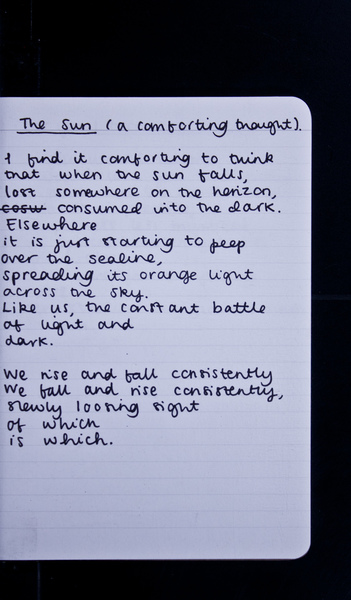 The Sun (a comforting thought).
I find it comforting to think
that when the sun falls,
lost somewhere on the horizon,
consumed into the dark.
Elsewhere
it is just starting to peep
over the sealine,
spreading its orange light
across the sky.
Like us, the constant battle
of light and
dark.
We rise and fall consistently
We fall and rise consistently,
slowly loosing sight
of which
is which.